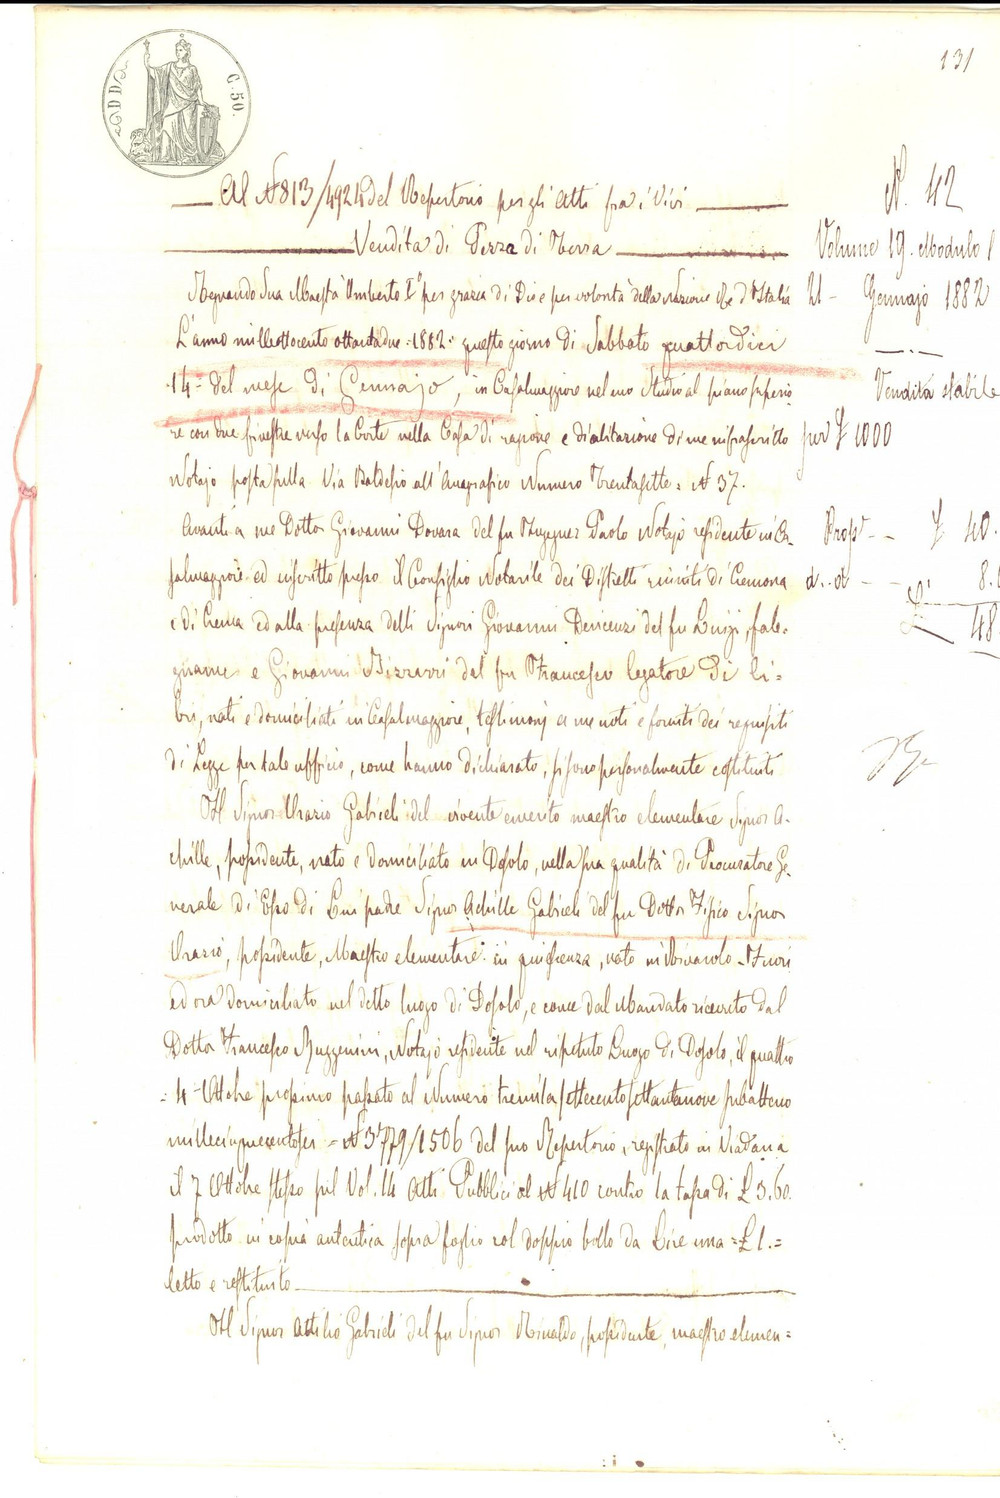 131
C. 50.
Al N 813/4924 del Repertorio per gli Atti fra i Vivi
Vendita di Pezza di Terra
Regnando Sua Maestà Umberto I° per grazia di Dio e per volontà della Nazione Re d'Italia
L'anno milleottocento ottantadue = 1882 = questo giorno di Sabbato quattordici
14 = del mese di Gennajo, in Casalmaggiore nel mio Studio al piano superio
re con due finestre verso la Corte nella Casa di ragione e di abitazione di me infrascritto
Notajo posta sulla Via Baldesio all'Anagrafico Numero Trentasette = N 37.
Avanti a me Dottor Giovanni Dovara del fu Ingegner Paolo Notajo residente in Ca-
salmaggiore ed inscritto presso il Consiglio Notarile dei Distretti riuniti di Cremona
e di Crema ed alla presenza delli Signori Giovanni Devicenzi del fu Luigi, fale-
gname e Giovanni Bizzarri del fu Francesco legatore di li=
bri, nati e domiciliati in Casalmaggiore, testimonj a me noti e forniti dei requisiti
di Legge per tale ufficio, come hanno dichiarato, si sono personalmente costituiti
Il Signor Orazio Gabrieli del vivente emerito maestro elementare Signor A-
chille, possidente, nato e domiciliato in Dosolo, nella sua qualità di Procuratore Ge-
nerale di Esso di Lui padre Signor Achille Gabrieli del fu Dottor Fisico Signor
Orazio, possidente, Maestro elementare in quiescenza, nato in Rivarolo - Fuori
ed ora domiciliato nel detto luogo di Dosolo, e come dal Mandato ricevuto dal
Dottor Francesco Ruggenini, Notajo residente nel ripetuto Luogo di Dosolo, il quattro
= 4 - Ottobre prossimo passato al Numero tremila settecento settantanove subalterno
millecinquecentosei = N 3779/1506 del suo Repertorio, registrato in Viadana
il 7 Ottobre stesso sul Vol. 14 Atti Pubblici al N 410 contro la tassa di £ 3.60
prodotto in copia autentica sopra foglio col doppio bollo da Lire una = £ 1. =
letto e restituito
Il Signor Attilio Gabrieli del fu Signor Rinaldo, possidente, maestro elemen=
N. 42
Volume 19. Modulo 1
21 - Gennajo 1882
Vendita stabile
per £ 1000
Prop - - £ 40.
d. d - - 8.
£ 48.